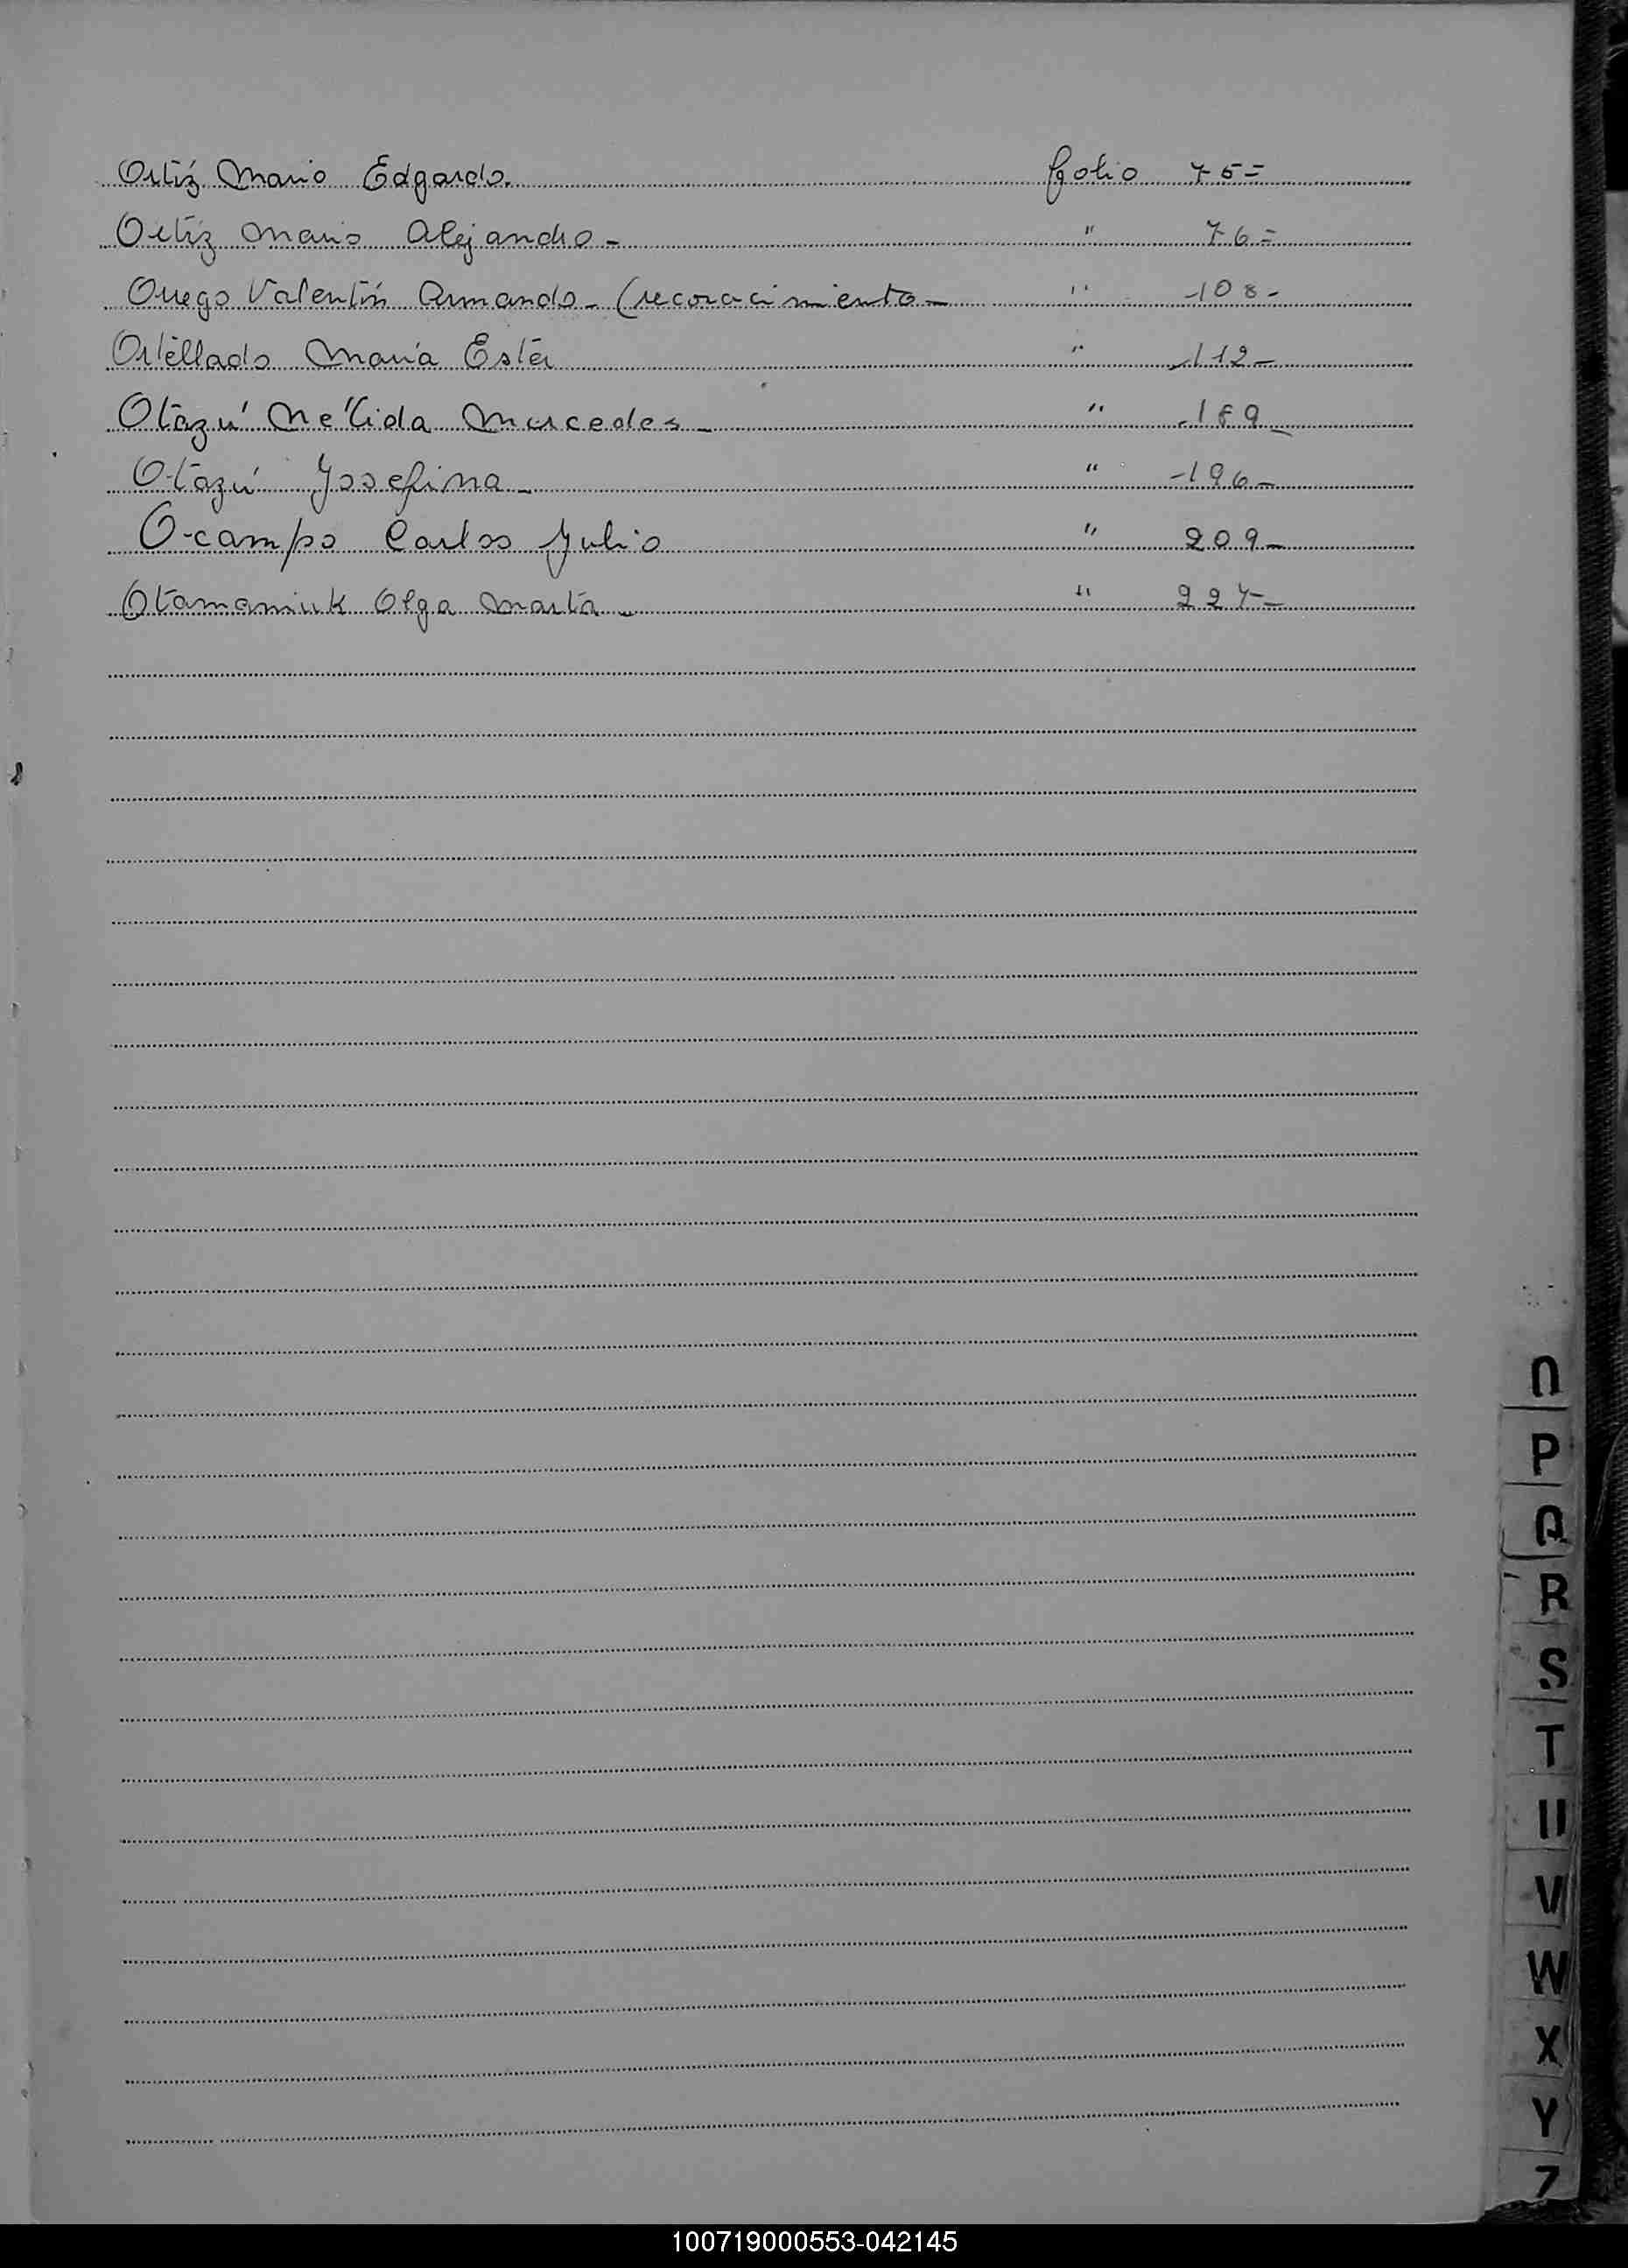 Ortíz Mario Edgardo. folio 75=
Ortíz Mario Alejandro - " 76=
Orrego Valentín Armando - (reconacimiento - " -108-
Ortellado María Ester " -112-
Otazú Nélida Mercedes - " -189-
Otazú Josefina - " -196-
Ocampo Carlos Julio " 209-
Otamaniuk Olga Marta - " 227-
O
P
Q
R
S
T
U
V
W
X
Y
Z
100719000553-042145